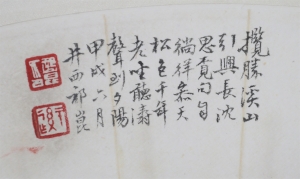 攬勝溪山
引興長沈
思覓句自
徜徉參天
松色千年
老坐聽濤
聲到夕陽
甲戌六月
井西祁崑